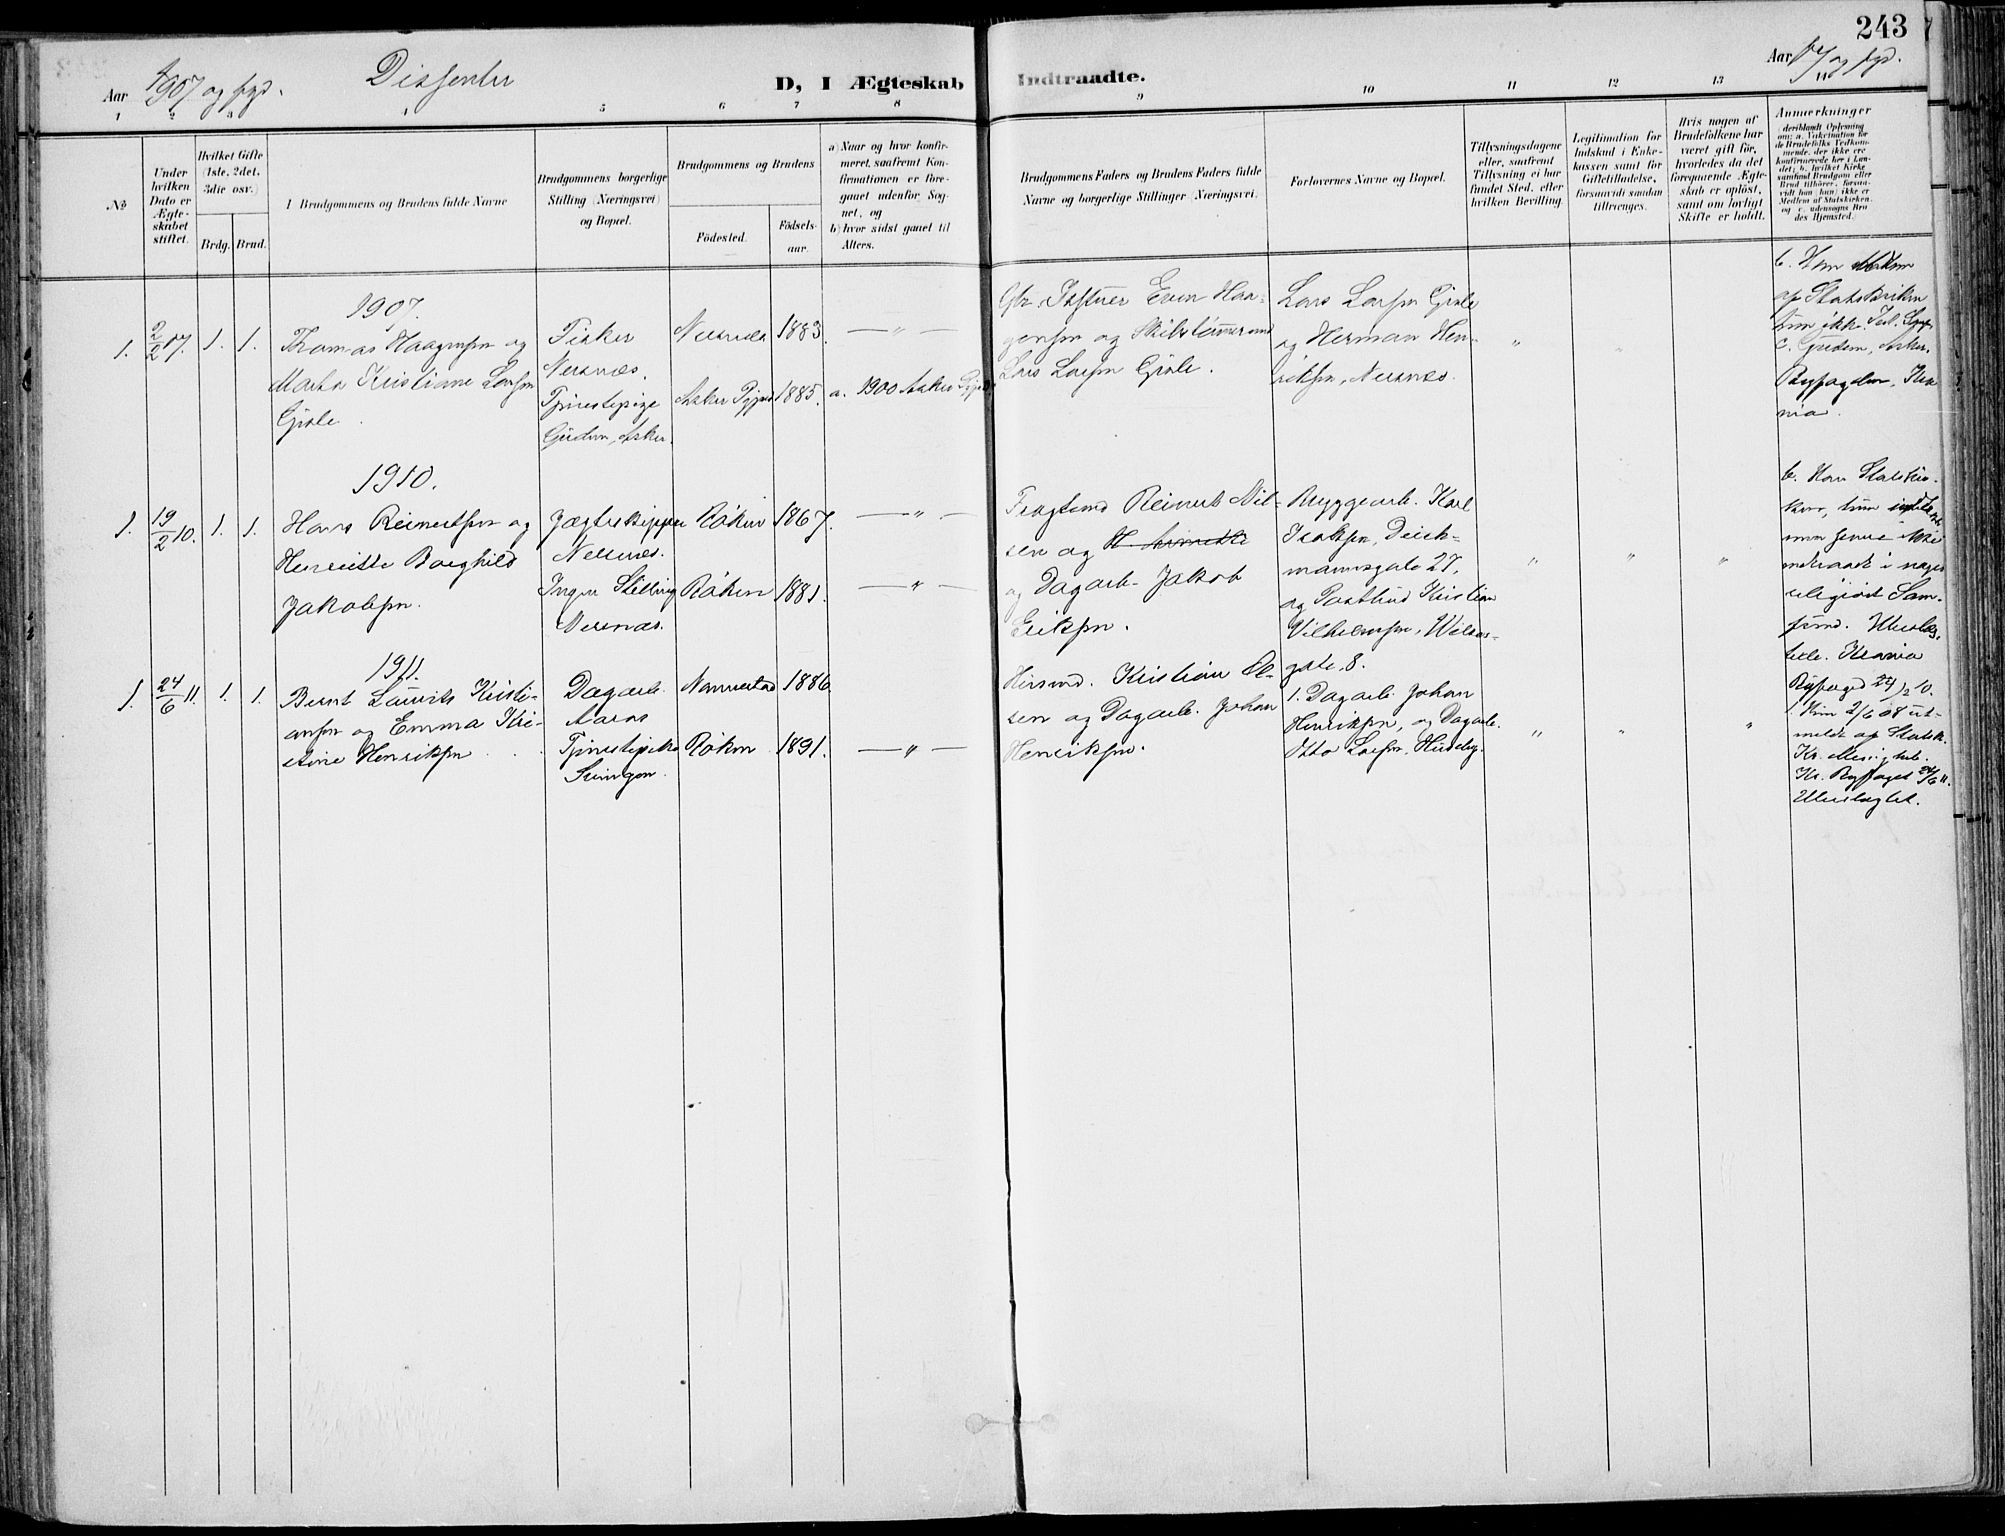 243
Aar 1907 og fgd.
Dissenter
D, I Ægteskab Indtraadte.
Aar 07 og fgd.
1 2 3 4 5 6 7 8 9 10 11 12 13 14
No
Under hvilken Dato er Ægteskabet stiftet.
Hvilket Gifte (1ste, 2det, 3die osv.)
Brdg. Brud.
I Brudgommens og Brudens fulde Navne
Brudgommens borgerlige Stilling (Næringsvei) og Bopæl.
Brudgommens og Brudens
Födested.
Födsels-aar.
a) Naar og hvor konfirmeret, saafremt Konfirmationen er foregaaet udenfor Sognet, og
b) hvor sidst gaaet til Alters.
Brudgommens Faders og Brudens Faders fulde Navne og borgerlige Stillinger (Næringsvei).
Forlovernes Navne og Bopæl.
Tillysningsdagene eller, saafremt Tillysning ei har fundet Sted, efter hvilken Bevilling.
Legitimation for Indskud i Enkekassen samt for Giftetilladelse, forsaavidt saadan tiltrænges.
Hvis nogen af Brudefolkene har været gift för, hvorledes da det foregaaende Ægteskab er oplöst, samt om lovligt Skifte er holdt.
Anmærkninger
(deriblandt Oplysning om: a. Vakcination for de Brudefolks Vedkommende, der ikke ere konfirmerede her i Landet; b. hvilket Kirkesamfund Brudgom eller Brud tilhörer, forsaavidt han (hun) ikke er Medlem af Statskirken, og c. udensogns Brudes Hjemsted.)
1907.
1. 2/2 07. 1. 1.
Thomas Haagensen og
Marta Kristiane Larsen
Gisle.
Fisker
Nersnæs.
Tjenestepige
Gudem, Asker.
Nersnæs 1883. — " —
Asker 1885. a. 1900 Asker
Even Haa-
gensen og Skibstømmermand
Lars Larsen Gisle.
Lars Larsen Gisle
og Herman Hen-
riksen, Nersnæs.
" "
b. Han Medlem
af Statskirken
hun ikke.
c. Gudem, Asker.
Byfogden, Kra-
nia.
1910.
1. 19/2 10. 1. 1.
Hans Reinertsen og
Henriette Borghild
Jakobsen.
Jægteskipper
Nersnæs.
Ingen Stilling
Nersnæs.
Røken 1867. — " —
Røken 1881. — " —
Reinert Nil-
sen og
og Dagarb. Jakob
Eriksen.
Bryggearb. Karl
Isaksen, Deich-
mannsgate 27,
og Postbud Kristian
Vilhelmsen,
gate 8.
" " "
b. Han Statskir-
ken, hun
indtraadt i noget
religiøst Sam-
fund.
Krania
Byfoged 22/2 10.
1911.
1. 24/6 11. 1. 1.
Bernt Laurits Kristi-
ansen og Emma Kri-
stine Henriksen
Dagarb.
Aaros
Tjenestepike
Nannestad 1886.
Røken 1891. — " —
Kristian Ol-
sen og Dagarb. Johan
Henriksen.
1. Dagarb. Johan
Henriksen, og Dagarb.
Otto Larsen, Huseby.
" " "
1. Hun 2/6 08 ut-
meldt af Statsk.
Kr. Byfoget 24/6 11.